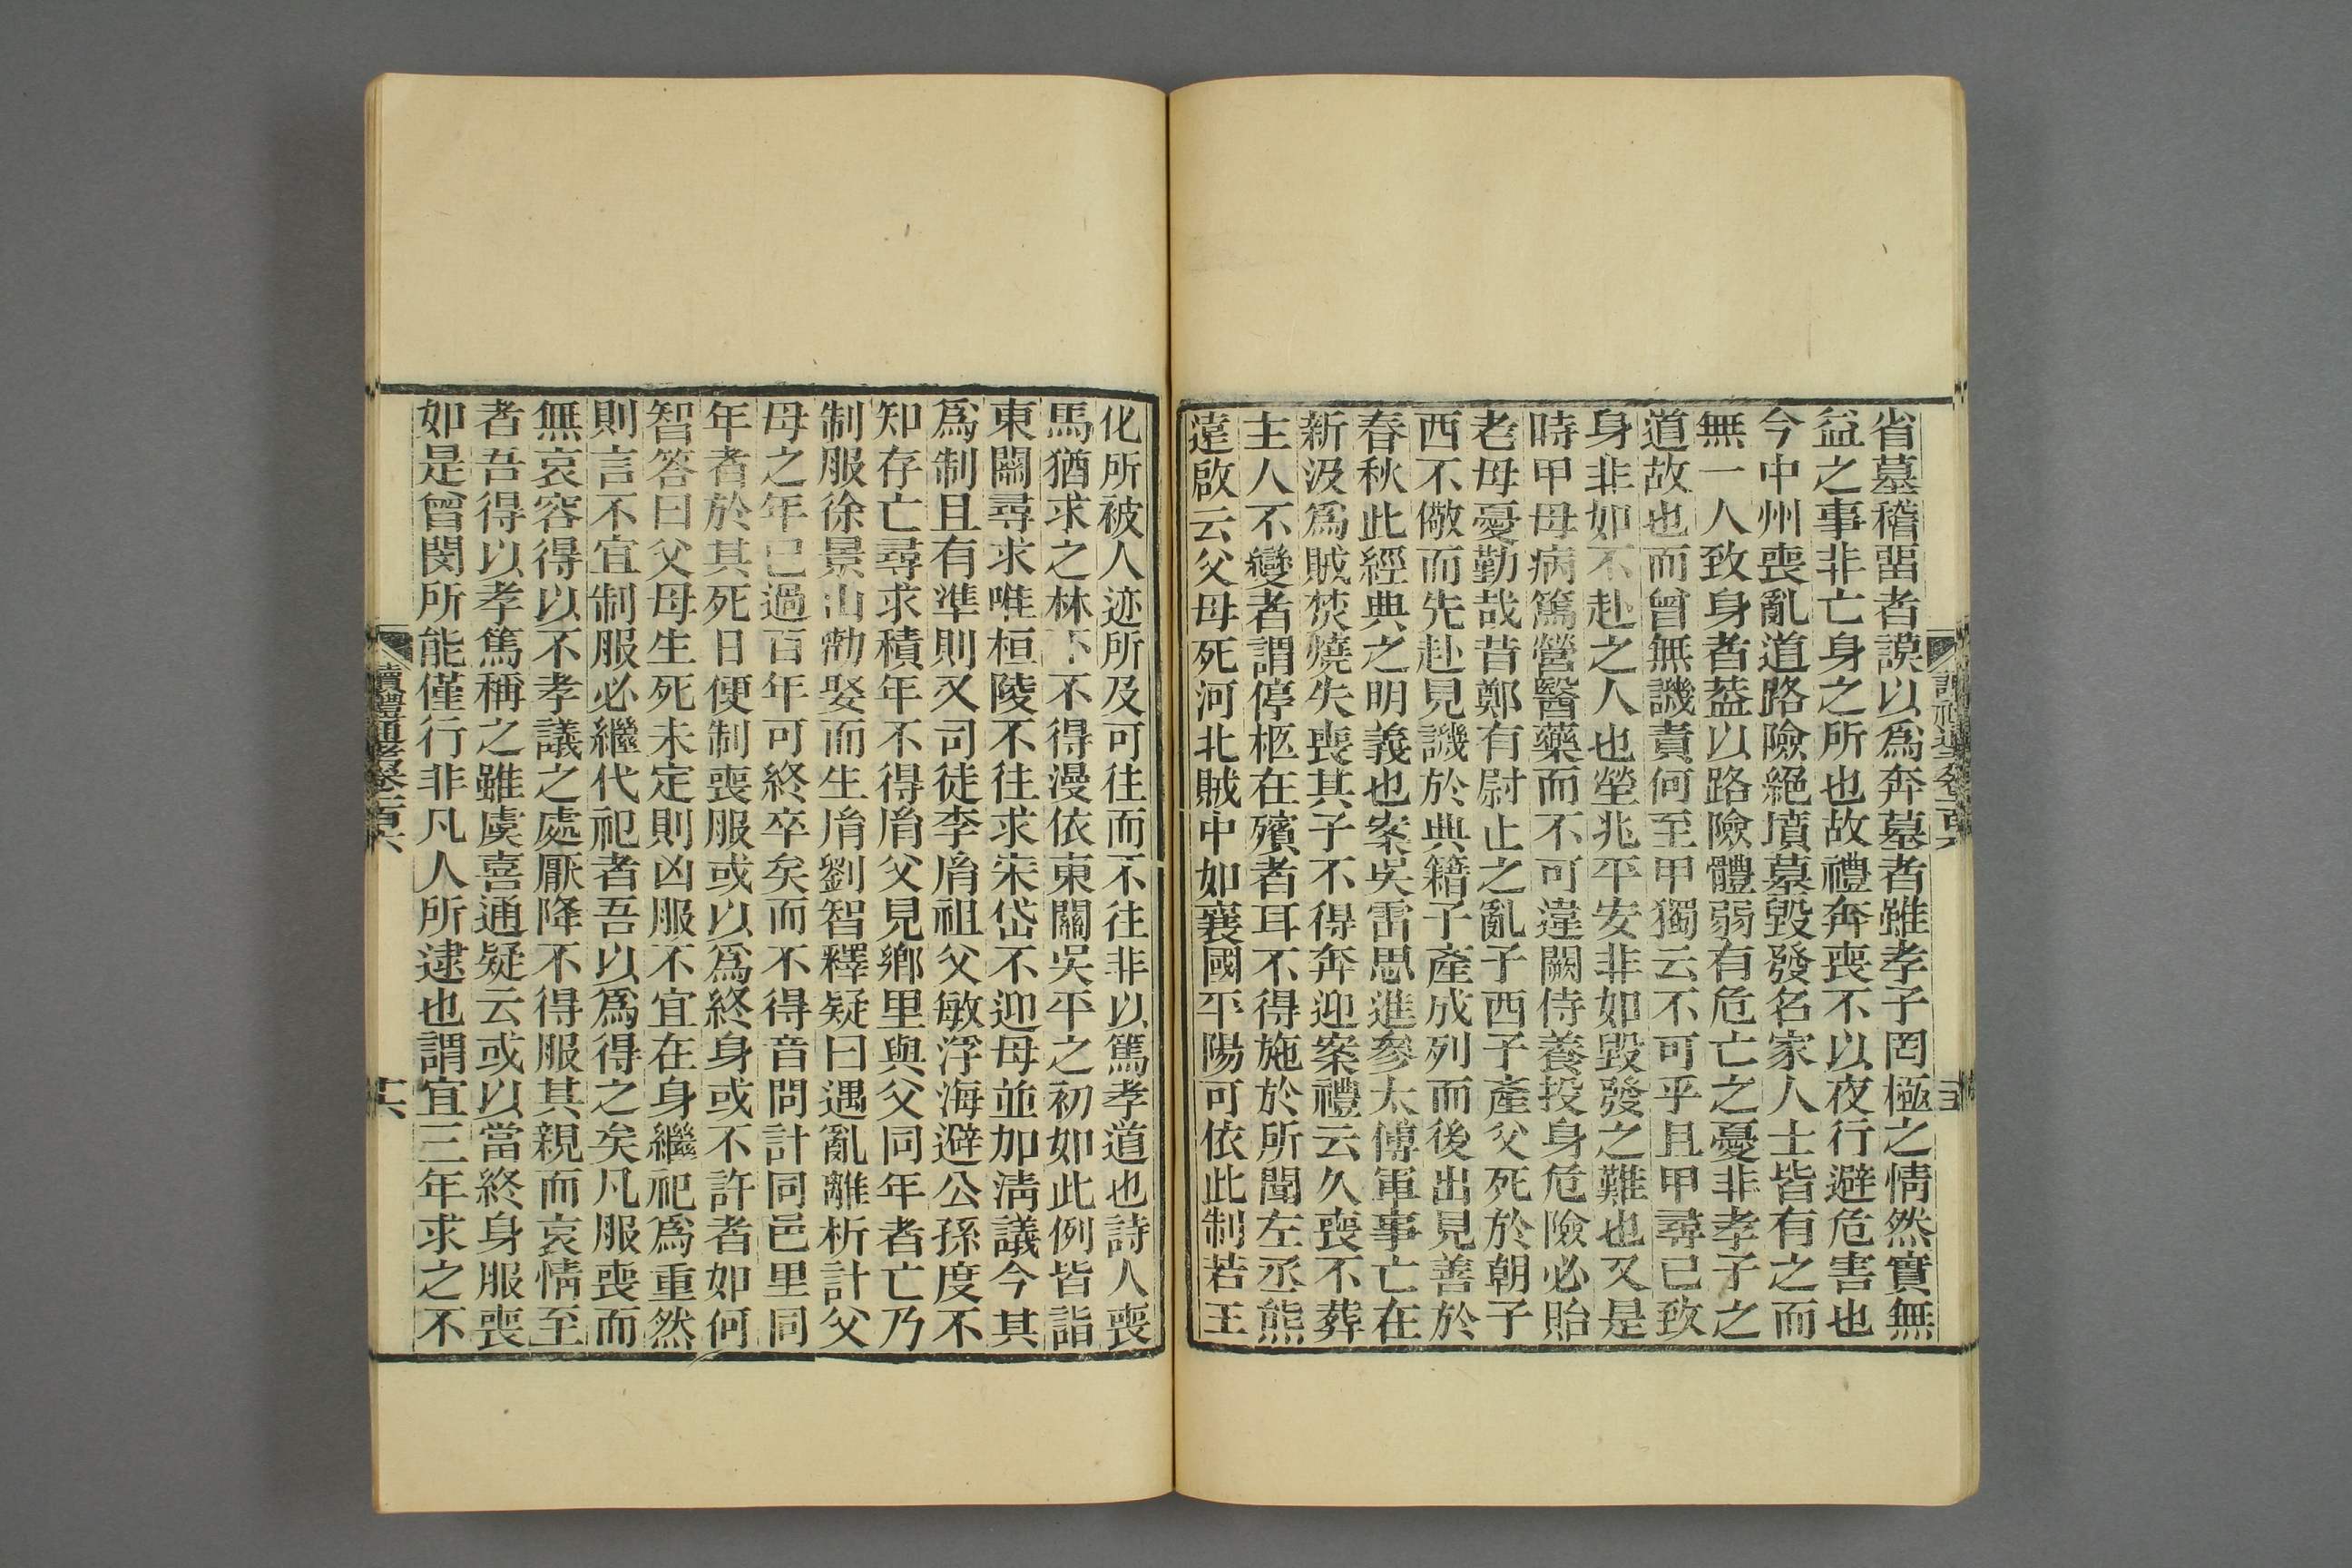 省墓稽畱者謨以爲奔墓者雖孝子罔極之情然實無
益之事非亡身之所也故禮奔喪不以夜行避危害也
今中州喪亂道路險絕墳墓毀發名家人士皆有之而
無一人致身者葢以路險體弱有危亡之憂非孝子之
道故也而曾無譏責何至甲獨云不可乎且甲尋已致
身非如不赴之人也塋兆平安非如毀發之難也又是
時甲母病篤營醫藥而不可違闕侍養投身危險必貽
老母憂勤哉昔鄭有尉止之亂子西子產父死於朝子
西不儆而先赴見譏於典籍子產成列而後出見善於
春秋此經典之明義也案吳雷思進參太傅軍事亡在
新汲爲賊焚燒失喪其子不得奔迎案禮云久喪不葬
主人不變者謂停柩在殯者耳不得施於所聞左丞熊
遠啟云父母死河北賊中如襄國平陽可依此制若王
化所被人迹所及可往而不往非以篤孝道也詩人喪
馬猶求之林下不得漫依東關吳平之初如此例皆詣
東關尋求唯桓陵不往求宋岱不迎母並加淸議今其
爲制且有準則又司徒李胤祖父敏浮海避公孫度不
知存亡尋求積年不得胤父見鄉里與父同年者亡乃
制服徐景山勸娶而生胤劉智釋疑曰遇亂離析計父
母之年已過百年可終卒矣而不得音問計同邑里同
年者於其死日便制喪服或以爲終身或不許者如何
智答曰父母生死未定則凶服不宜在身繼祀爲重然
則言不宜制服必繼代祀者吾以爲得之矣凡服喪而
無哀容得以不孝議之處厭降不得服其親而哀情至
者吾得以孝篤稱之雖虞喜通疑云或以當終身服喪
如是曾閔所能僅行非凡人所逮也謂宜三年求之不
讀禮通考卷一百六